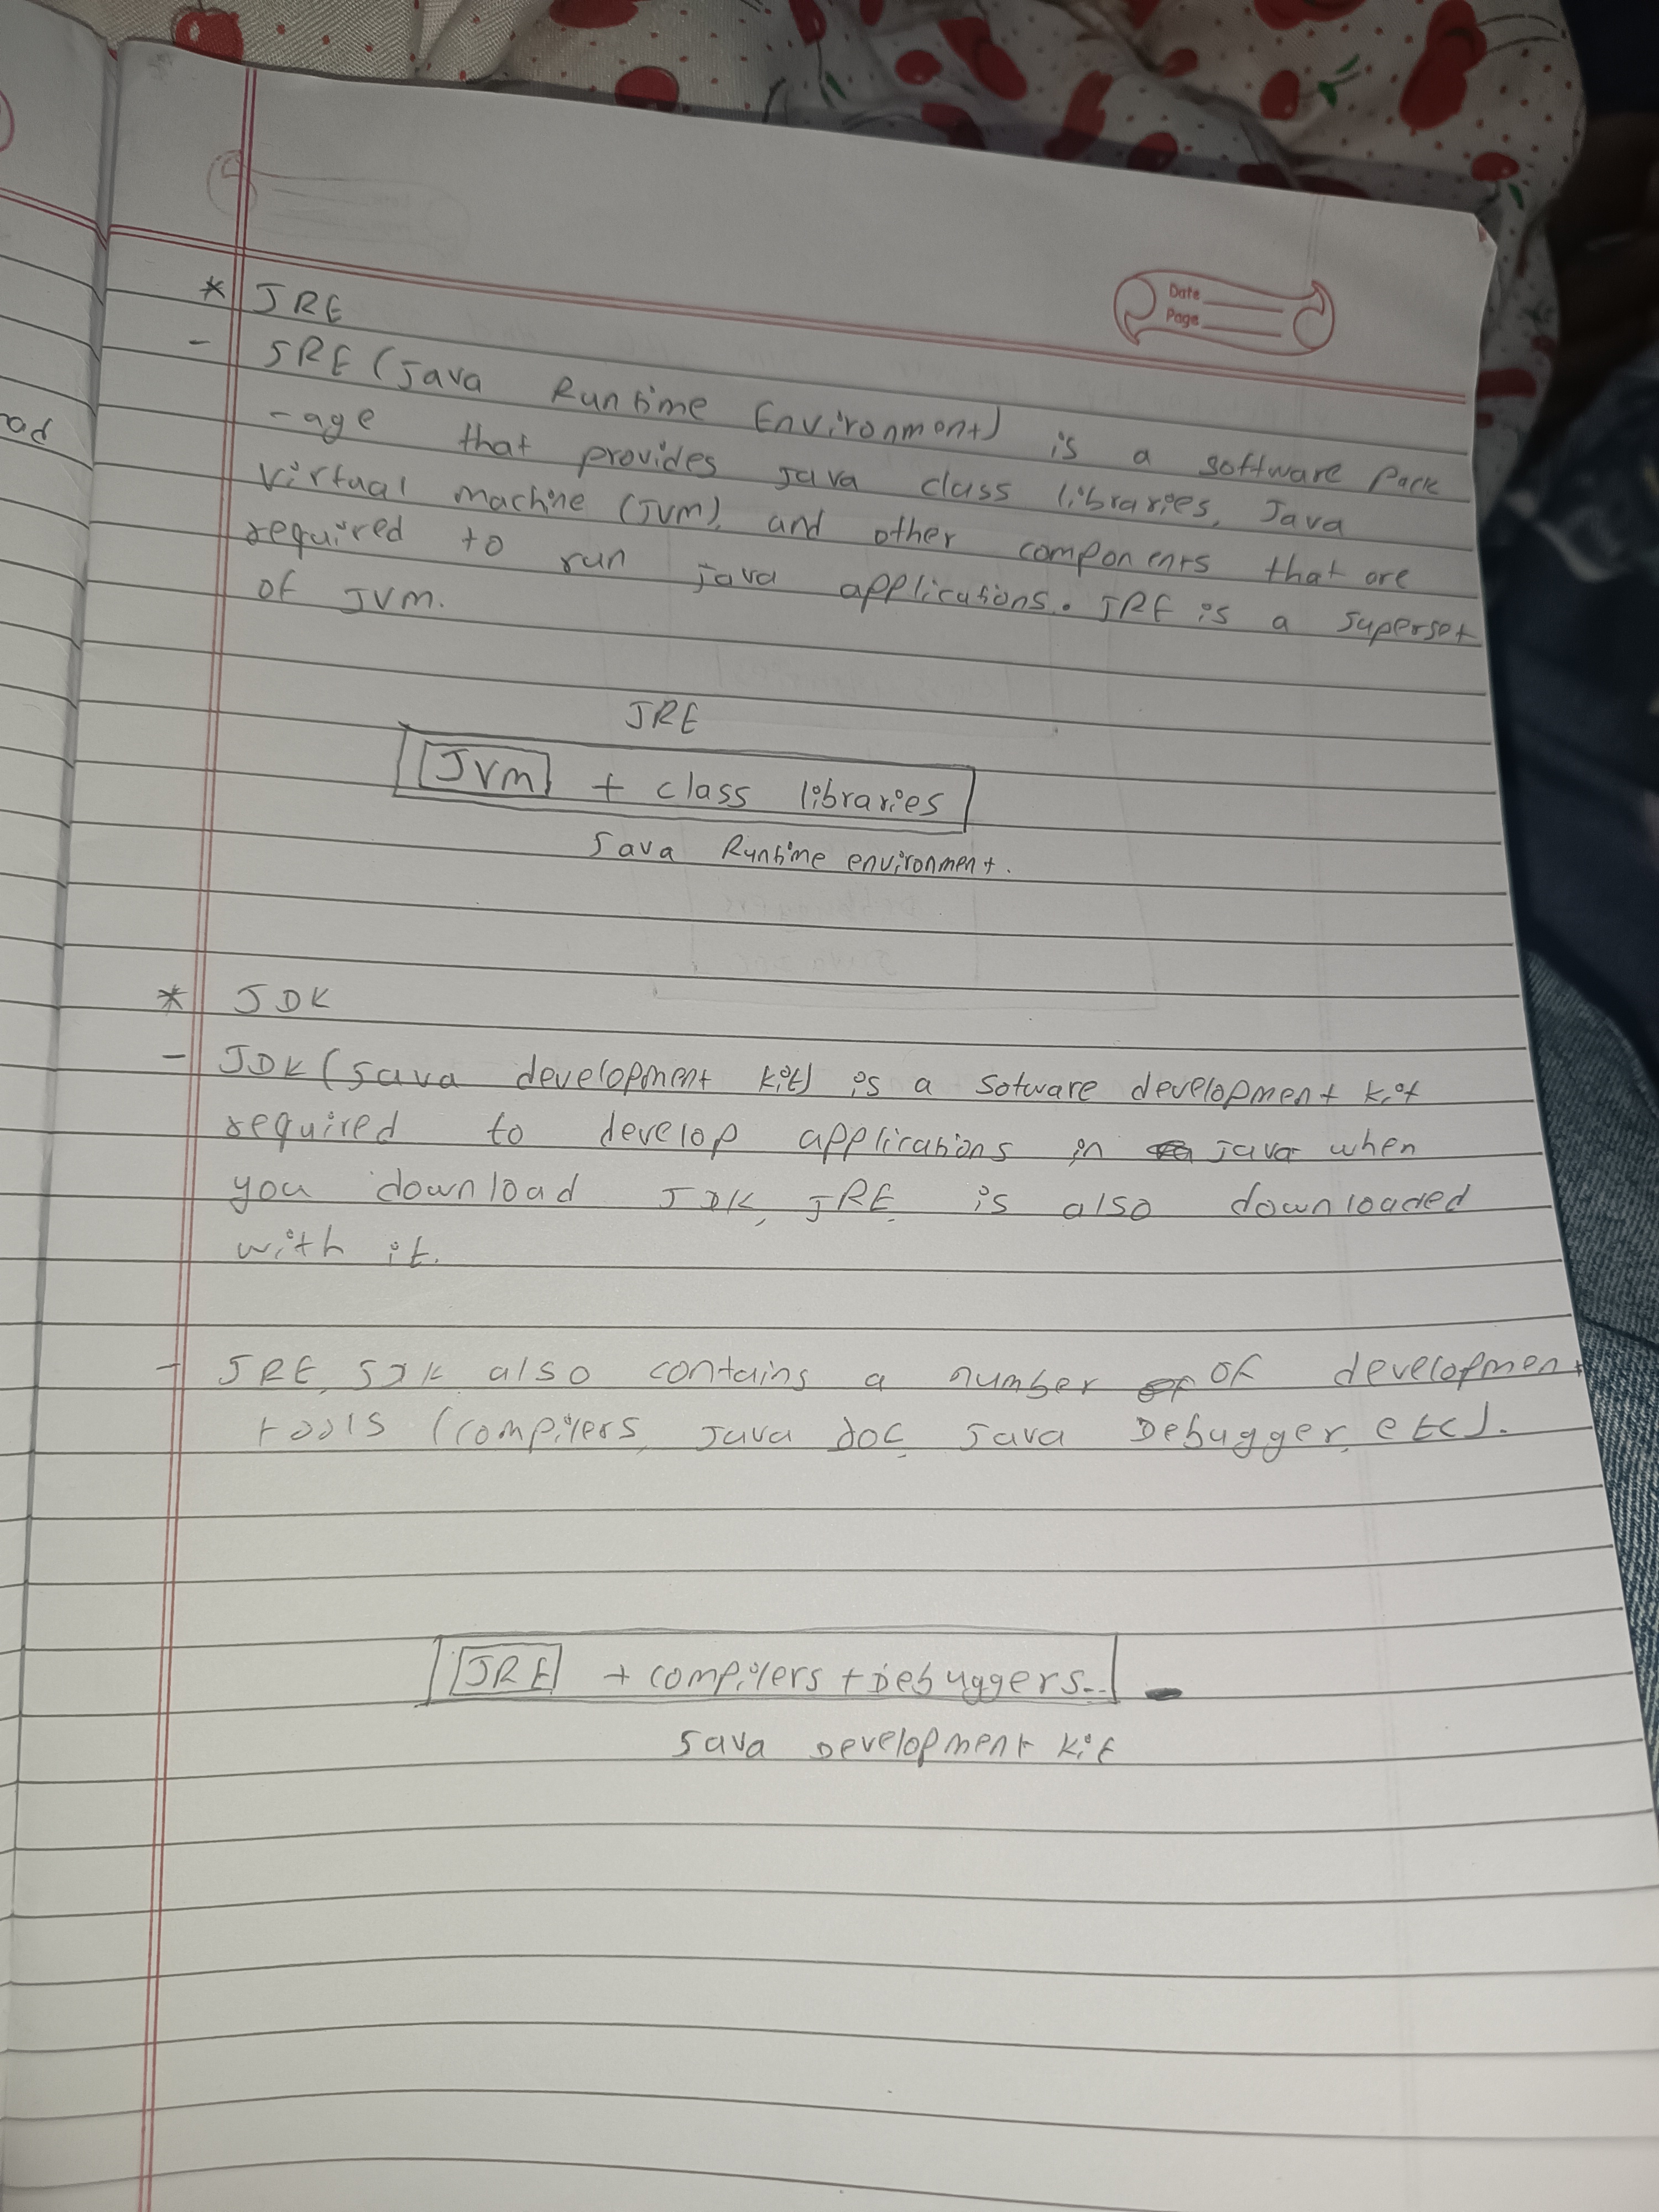 ad
Date
Page
* JRE
- JRE (Java Runtime Environment) is a software pack
-age that provides Java class libraries, Java
virtual machine (JVM), and other components that are
required to run java applications. JRE is a superset
of JVM.
JRE
JVM + class libraries
Java Runtime environment.
* JDK
- JDK (Java development kit) is a sotware development kit
required to develop applications in java when
you download JDK, JRE is also downloaded
with it.
- JRE, JDK also contains a number of development
tools (compilers, Java doc, Java Debugger, etc).
JRE + compilers + Debuggers..
Java Development kit